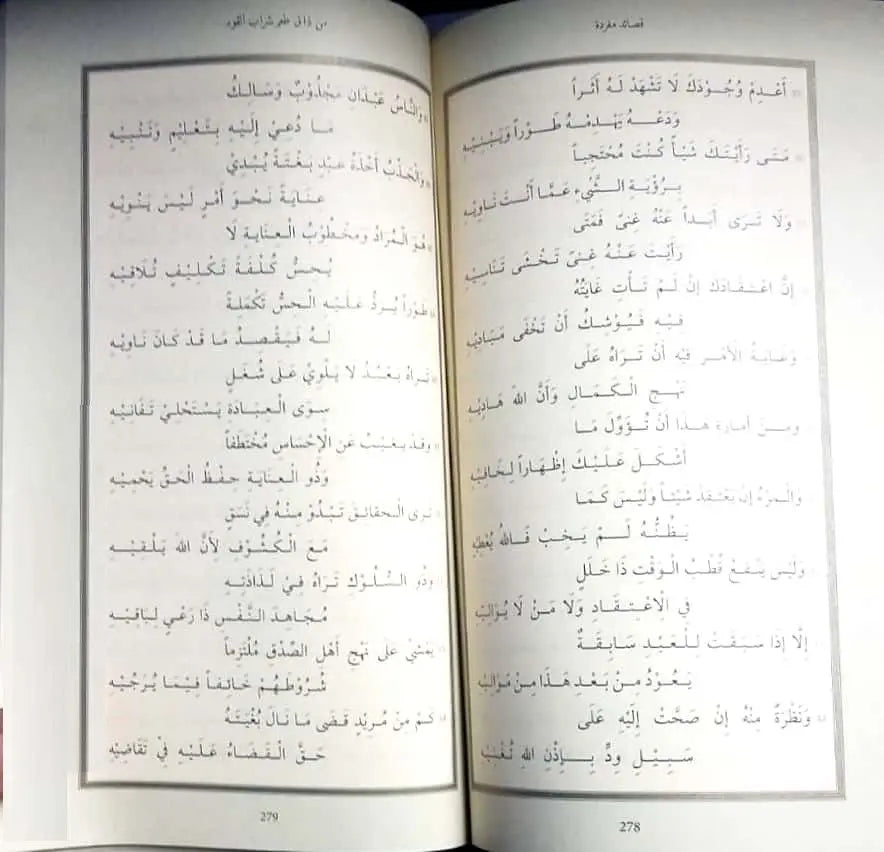 قصائد مفردة
أَعْدِمْ وُجُوْدَكَ لَا تَشْهَدْ لَهُ أَثَراً
وَدَعْـــهُ يَهْدِمُـهُ طَـوْراً وَيَبْنِيْـهِ
مَتَى رَأَيْتَكَ شَيْأً كُنْتَ مُحْتَجِباً
بِرُؤْيَةِ الشَّيْءِ عَمَّا أَنْتَ نَاوِيْهِ
وَلَا تَرَى أَبَداً عَنْهُ غِنىً فَمَتَى
رَأَيْتَ عَنْهُ غِنىً تَخْشَى تَنَاسِيْهِ
إِنَّ اعْتِقَادَكَ إِنْ لَمْ تَأْتِ غَايَتُهُ
فِيْهِ فَيُوْشِكُ أَنْ تَخْفَى مَبَادِيْهِ
وَغَايَةُ الْأَمْرِ فِيْهِ أَنْ تَرَاهُ عَلَى
نَهْجِ الْكَمَالِ وَأَنَّ اللهَ هَادِيْهِ
وَمِنْ أَمَارَةِ هَذَا أَنْ تُؤَوِّلَ مَا
أَشْكَلَ عَلَيْكَ إِظْهَاراً لِخَافِيْهِ
وَالْمَرْءُ إِنْ يَعْتَقِدْ شَيْئاً وَلَيْسَ كَمَا
يَظُنُّهُ لَـمْ يَخِبْ فَـاللهُ يُعْطِيْهِ
وَلَيْسَ يَنْفَعُ قُطْبُ الْوَقْتِ ذَا خَلَلٍ
فِي الْاِعْتِقَادِ وَلَا مَنْ لَا يُوَالِيْهِ
إِلَّا إِذَا سَبَقَتْ لِلْعَبْدِ سَابِقَةٌ
يَعُوْدُ مِنْ بَعْدِ هَـذَا مِنْ مَوَالِيْهِ
وَنَظْرَةٌ مِنْهُ إِنْ صَحَّتْ إِلَيْهِ عَلَى
سَبِيْلِ وِدٍّ بِــإِذْنِ اللهِ تُغْنِيْهِ
278
من ذاق طعم شراب القوم
وَالنَّاسُ عَبْدَانِ مَجْذُوْبٌ وَسَالِكُ
مَا دُعِيْ إِلَيْهِ بِتَعْلِيْمٍ وَتَنْبِيْهِ
وَالْجَذْبُ أَخْذَةُ عَبْدٍ بَغْتَةً يُبْدِيْ
عِنَايَةً نَحْوَ أَمْرٍ لَيْسَ يَنْوِيْهِ
هُوَ الْمُرَادُ وَمَخْطُوْبُ الْعِنَايَةِ لَا
يُحِسُّ كُلْفَةَ تَكْلِيْفٍ تُلَاقِيْهِ
طَوْراً يُرَدُّ عَلَيْهِ الْحِسُّ تَكْمِلَةً
لَهُ فَيَقْصِدُ مَا قَدْ كَانَ نَاوِيْهِ
تَرَاهُ يَعْبُدُ لَا يَلْوِيْ عَلَى شُغْلٍ
سِوَى الْعِبَادَةِ يَسْتَحْلِيْ تَفَانِيْهِ
وَقَدْ يَغِيْبُ عَنِ الْإِحْسَاسِ مُخْتَطَفاً
وَذُو الْعِنَايَةِ حِفْظُ الْحَقِّ يَحْمِيْهِ
تَرَى الْحَقَائِقَ تَبْدُوْ مِنْهُ فِي نَسَقٍ
مَعَ الْكُشُوْفِ لِأَنَّ اللهَ يُلْقِيْـهِ
وَذُو السُّلُوْكِ تَرَاهُ فِيْ لَذَاذَتِهِ
مُجَاهِدَ النَّفْسِ ذَا رَعْيٍ لِبَاقِيْـهِ
يَمْشِيْ عَلَى نَهْجِ أَهْلِ الصِّدْقِ مُلْتَزِماً
شُرُوْطَهُمْ خَائِفاً فِيْمَا يُرَجِّيْهِ
كَمْ مِنْ مُرِيْدٍ قَضَى مَا نَالَ بُغْيَتَهُ
حَقَّ الْقَضَاءُ عَلَيْهِ فِيْ تَقَاضِيْهِ
279